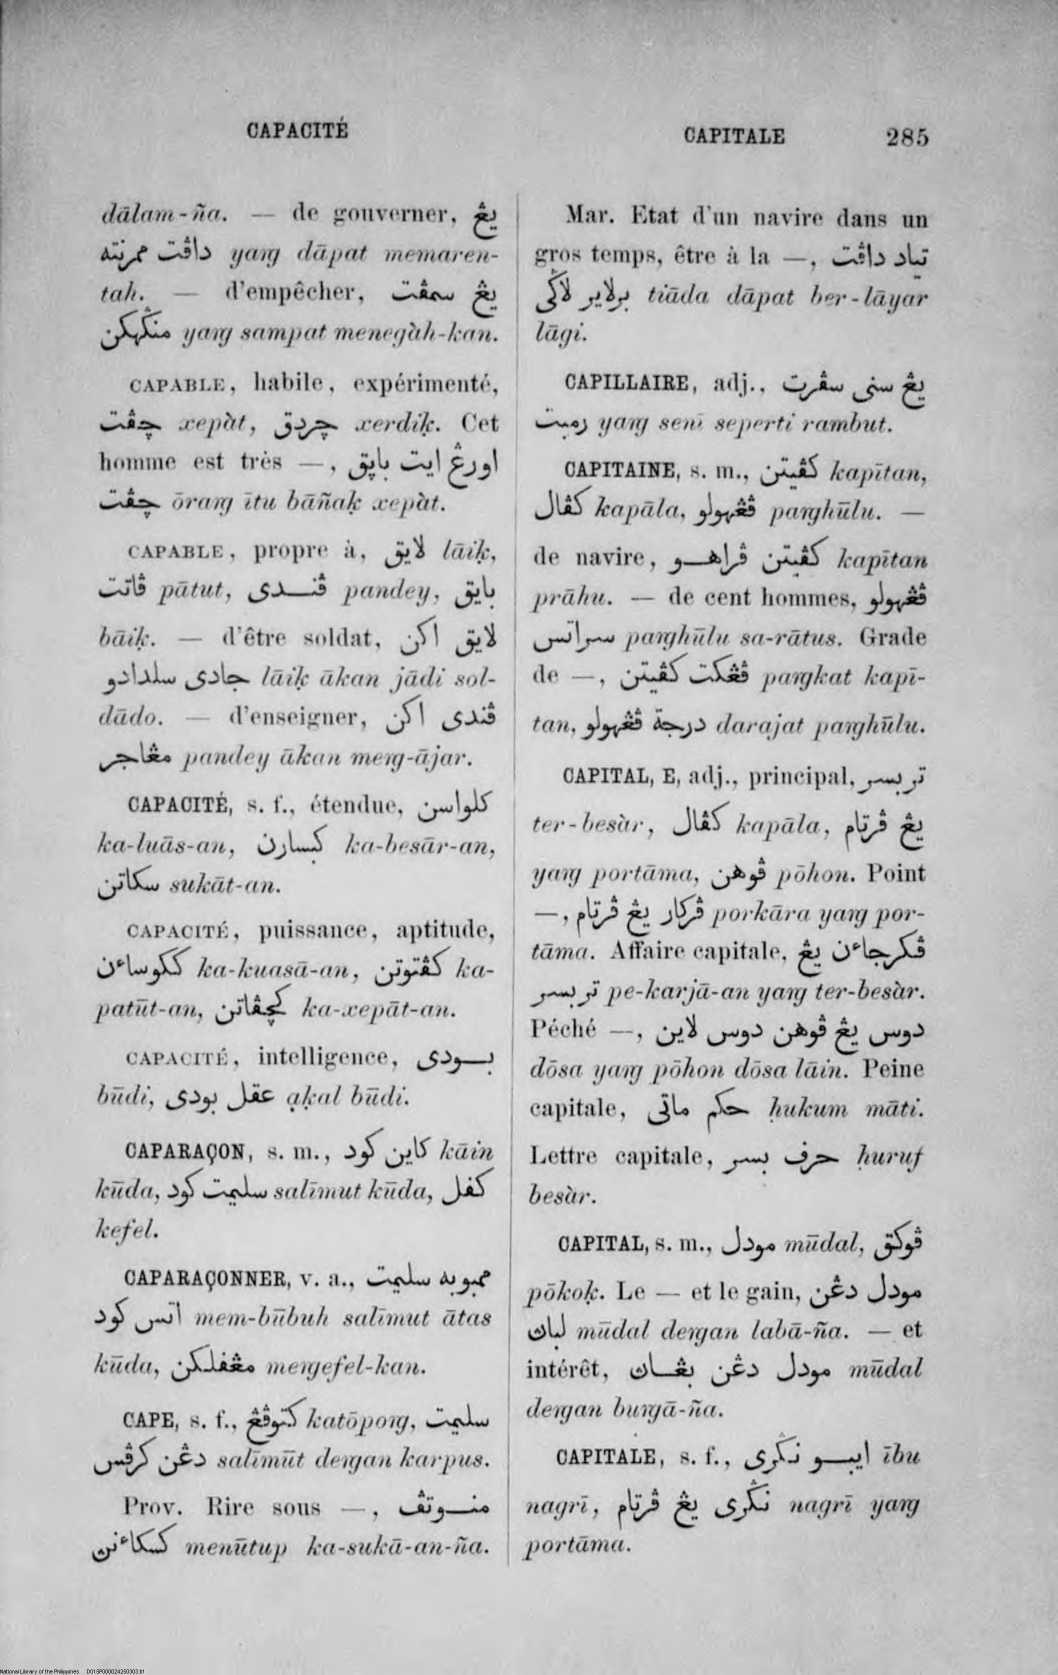 CAPACITÉ
CAPITALE 285
dālam-ña. — de gouverner, يڠ
داڤت ممرنته yaŋg dāpat memaren-
tah. — d'empêcher, يڠ سمڤت
منڬهکن yaŋg sampat menegàh-kan.
CAPABLE, habile, expérimenté,
چڤت xepàt, چردق xerdiḳ. Cet
homme est très —, اورڠ ايت باپق
چڤت ōraŋg ītu bāñaḳ xepàt.
CAPABLE, propre à, لايق lāiḳ,
ڤاتت pātut, ڤندى pandey, بايق
bāiḳ. — d'être soldat, لايق اکن
جادى سلدادو lāiḳ ākan jādi sol-
dādo. — d'enseigner, ڤندى اکن
مڠاجر pandey ākan meŋg-ājar.
CAPACITÉ, s. f., étendue, کلواسن
ka-luās-an, کبسارن ka-besār-an,
سکاتن sukāt-an.
CAPACITÉ, puissance, aptitude,
ککوساءن ka-kuasā-an, کڤتوتن ka-
patūt-an, کچڤاتن ka-xepāt-an.
CAPACITÉ, intelligence, بودى
būdi, عقل بودى ạḳal būdi.
CAPARAÇON, s. m., کاين کود kāin
kūda, سليمت کود salīmut kūda, کفل
kefel.
CAPARAÇONNER, v. a., ممبوبه سليمت
اتس کود mem-būbuh salīmut ātas
kūda, مڠفلکن meŋgefel-kan.
CAPE, s. f., کتوڤڠ katōpoŋg, سليمت
دڠن کرڤس salīmūt deŋgan karpus.
Prov. Rire sous —, منوتڤ
کسکاءنن menūtup ka-sukā-an-ña.
Mar. Etat d'un navire dans un
gros temps, être à la —, تياد داڤت
برلاير لاڬى tiāda dāpat ber-lāyar
lāgi.
CAPILLAIRE, adj., يڠ سنى سڤرت
رمبت yaŋg senī seperti rambut.
CAPITAINE, s. m., کڤيتن kapītan,
کڤال kapāla, ڤڠهولو paŋghūlu. —
de navire, کڤيتن ڤراهو kapītan
prāhu. — de cent hommes, ڤڠهولو
سراتس paŋghūlu sa-rātus. Grade
de —, ڤڠکت کڤيتن paŋgkat kapī-
tan, درجة ڤڠهولو darajat paŋghūlu.
CAPITAL, E, adj., principal, تربسر
ter-besàr, کڤال kapāla, يڠ ڤرتام
yaŋg portāma, ڤوهن pōhon. Point
—, ڤرکار يڠ ڤرتام porkāra yaŋg por-
tāma. Affaire capitale, ڤکرجاءن يڠ
تربسر pe-karjā-an yaŋg ter-besàr.
Péché —, دوس يڠ ڤوهن دوس لاين
dōsa yaŋg pōhon dōsa lāin. Peine
capitale, حکم ماتى ḥukum māti.
Lettre capitale, حرف بسر ḥuruf
besàr.
CAPITAL, s. m., مودل mūdal, ڤوکق
pōkoḳ. Le — et le gain, مودل دڠن
لباڽ mūdal deŋgan labā-ña. — et
intérêt, مودل دڠن بڠاڽ mūdal
deŋgan buŋgā-ña.
CAPITALE, s. f., ايبو نڬرى ību
nagrī, نڬرى يڠ ڤرتام nagrī yaŋg
portāma.
National Library of the Philippines